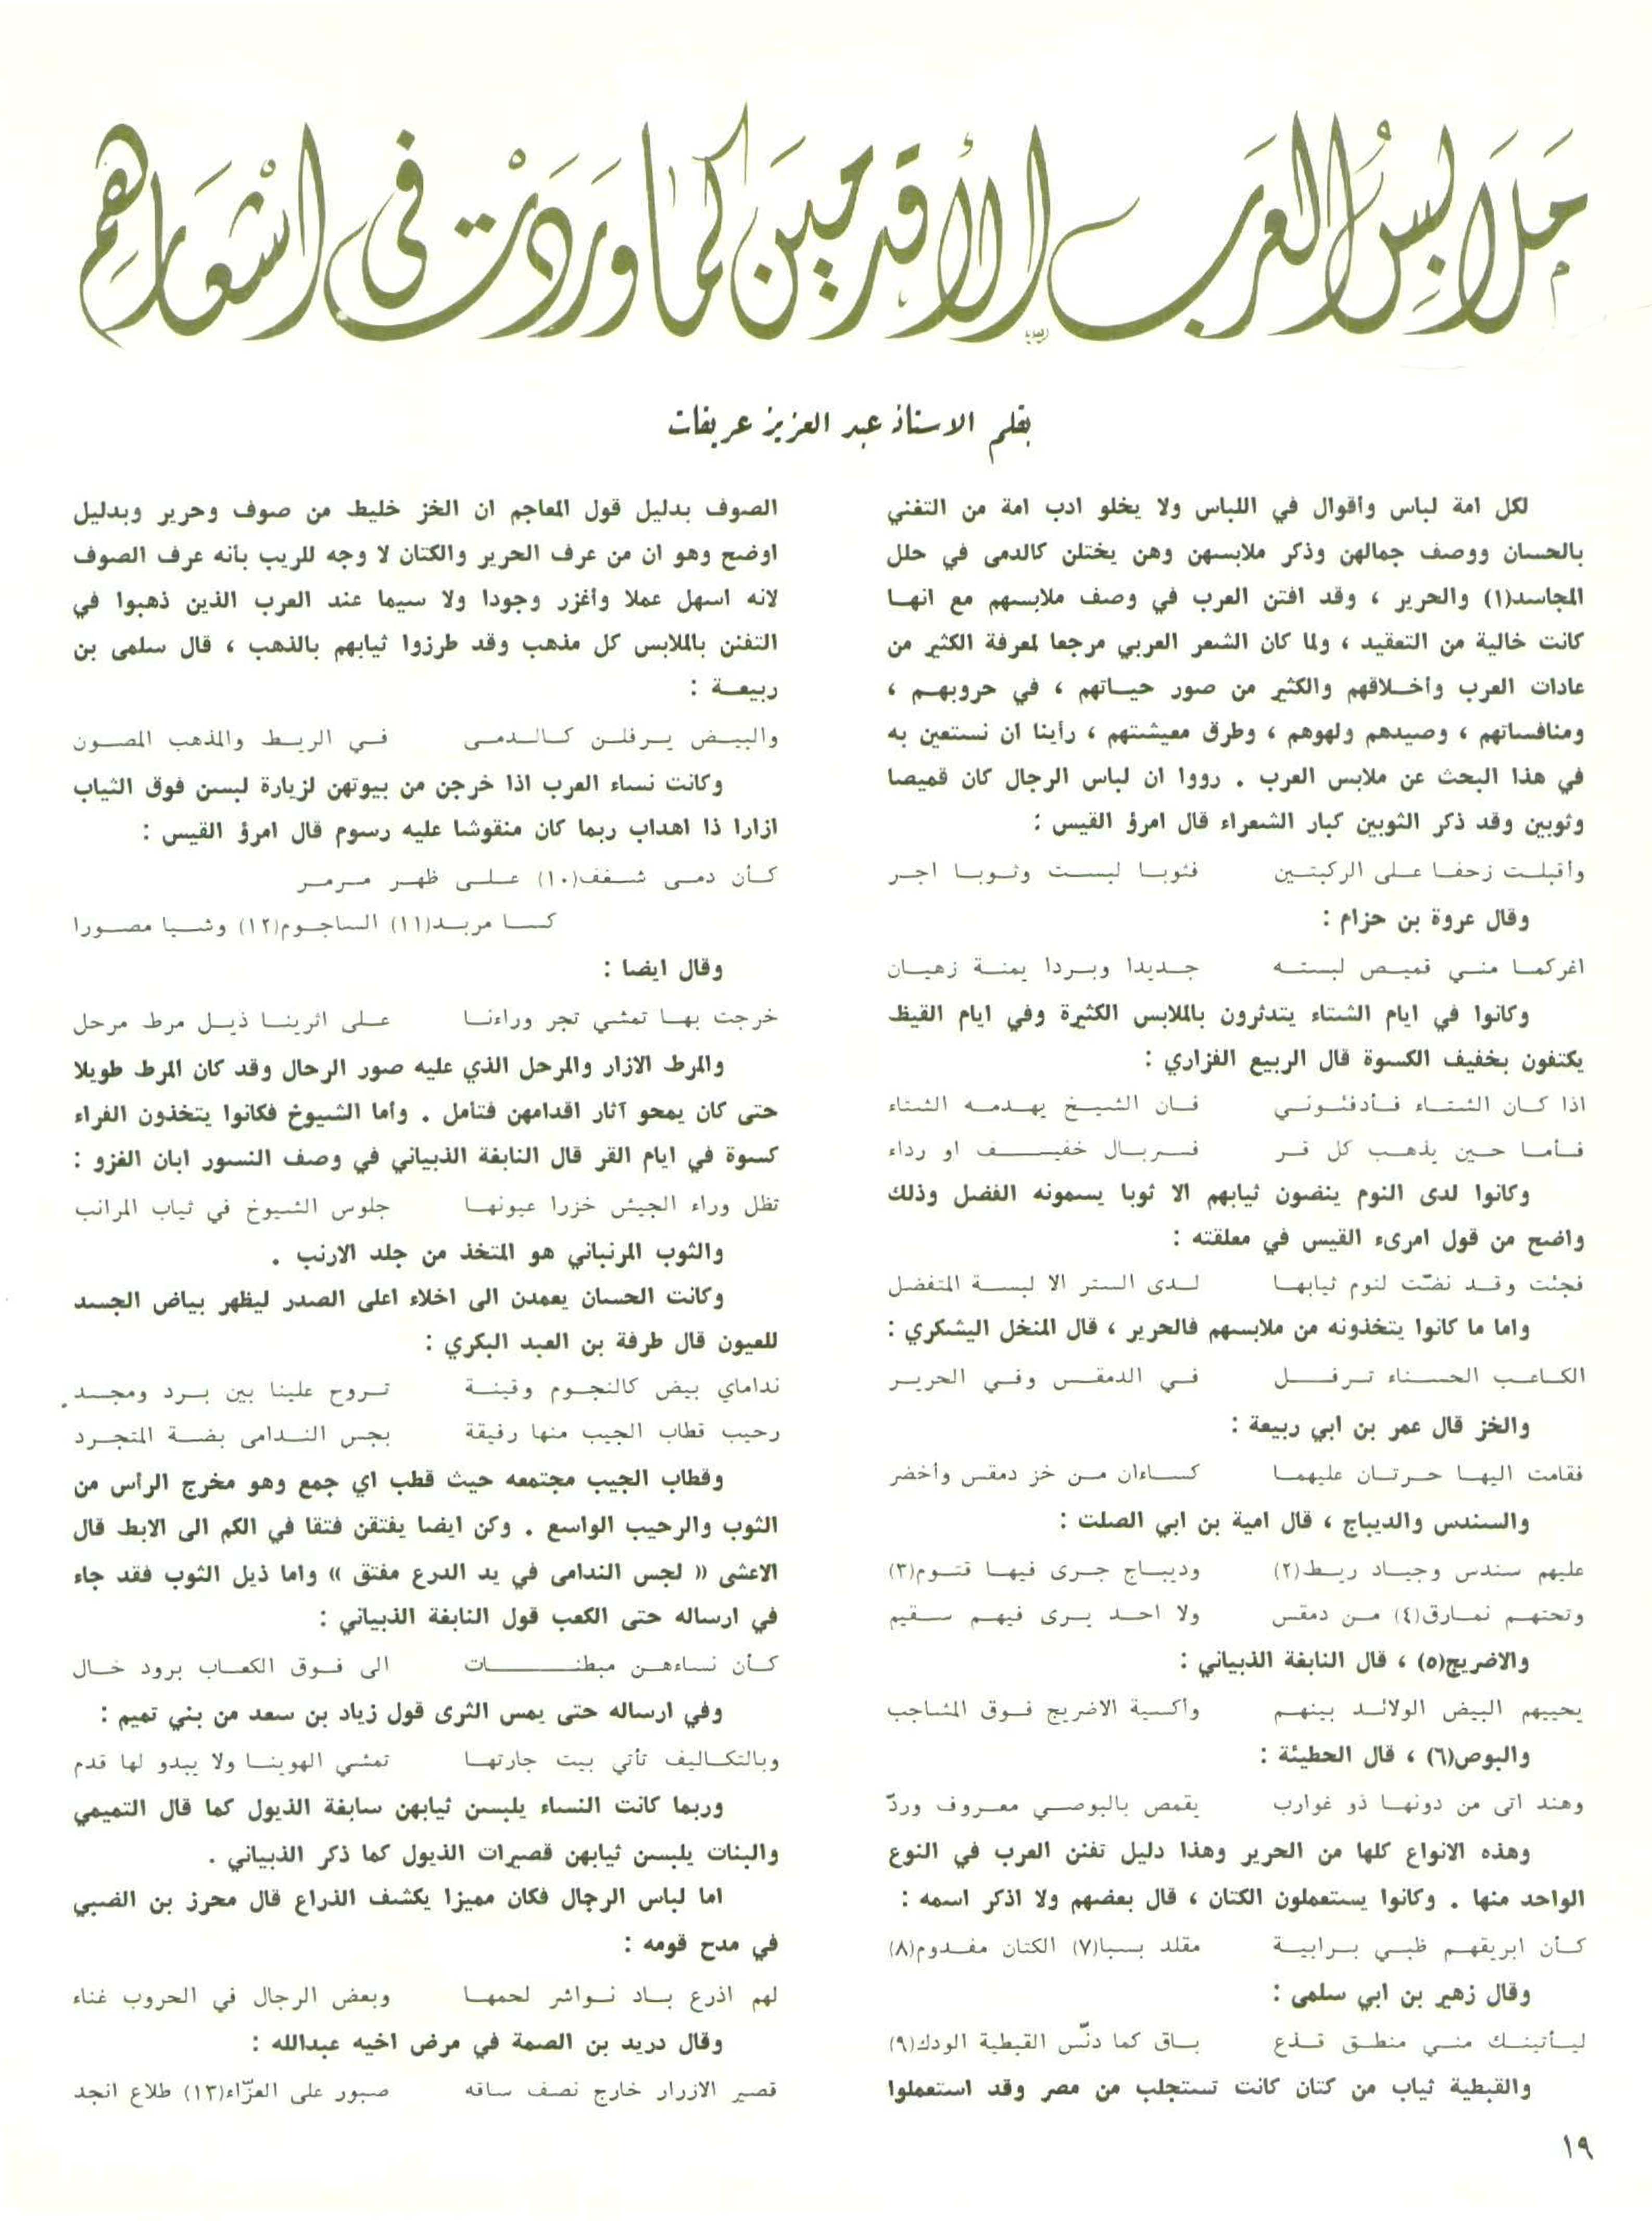 ملابس العرب الأقدمين كما وردت في اشعارهم
بقلم الاستاذ عبد العزيز عريفات
لكل امة لباس وأقوال في اللباس ولا يخلو ادب امة من التغني
بالحسان ووصف جمالهن وذكر ملابسهن وهن يختلن كالدمى في حلل
المجاسد(١) والحرير ، وقد افتن العرب في وصف ملابسهم مع انهـا
كانت خالية من التعقيد ، ولما كان الشعر العربي مرجعا لمعرفة الكثير من
عادات العرب وأخـلاقهم والكثير من صور حيـاتهم ، في حروبهـم ،
ومنافساتهم ، وصيدهم ولهوهم ، وطرق معيشتهم ، رأينا ان نستعين به
في هذا البحث عن ملابس العرب . رووا ان لباس الرجال كان قميصا
وثوبين وقد ذكر الثوبين كبار الشعراء قال امرؤ القيس :
وأقبلـت زحفـا عـلى الركبتـين فثوبـا لبسـت وثـوبـا اجـر
وقال عروة بن حزام :
اغركمـا منـي قميـص لبستـه جـديدا وبـردا يمنـة زهيـان
وكانوا في ايام الشتاء يتدثرون بالملابس الكثيرة وفي ايام القيظ
يكتفون بخفيف الكسوة قال الربيع الفزاري :
اذا كـان الشتـاء فـأدفئـونـي فـان الشيـخ يهـدمـه الشتاء
فـأمـا حـين يذهـب كل قـر فـربـال خفيـف او رداء
وكانوا لدى النوم ينضون ثيابهم الا ثوبا يسمونه الفضل وذلك
واضح من قول امرىء القيس في معلقته :
فجئت وقـد نضّت لنوم ثيابهـا لـدى الستر الا لبسـة المتفضل
واما ما كانوا يتخذونه من ملابسهم فالحرير ، قال المنخل اليشكري :
الكـاعـب الحسـناء تـرفـل فـي الدمقـس وفـي الحريـر
والخز قال عمر بن ابي ربيعة :
فقامت اليهـا حـرتـان عليهمـا كسـاءان مـن خز دمقس وأخضر
والسندس والديباج ، قال امية بن ابي الصلت :
عليهم سندس وجيـاد ريـط(٢) وديبـاج جـرى فيهـا قتـوم(٣)
وتحتهـم نمـارق(٤) مـن دمقس ولا احـد يـرى فيهـم سـقيم
والاضريج(٥) ، قال النابغة الذبياني :
يحييهم البيض الولائـد بينهـم وأكسية الاضريج فـوق المشاجب
والبوص(٦) ، قال الحطيئة :
وهند اتى من دونهـا ذو غوارب يقمص بالبوصـي معـروف وردّ
وهذه الانواع كلها من الحرير وهذا دليل تفنن العرب في النوع
الواحد منها . وكانوا يستعملون الكتان ، قال بعضهم ولا اذكر اسمه :
كـأن ابريقهـم ظبـي بـرابيـة مقلد بسبا(٧) الكتان مفـدوم(٨)
وقال زهير بن ابي سلمى :
ليـأتينـك منـي منطـق قـذع بـاق كما دنّس القبطية الودك(٩)
والقبطية ثياب من كتان كانت تستجلب من مصر وقد استعملوا
الصوف بدليل قول المعاجم ان الخز خليط من صوف وحرير وبدليل
اوضح وهو ان من عرف الحرير والكتان لا وجه للريب بأنه عرف الصوف
لانه اسهل عملا وأغزر وجودا ولا سيما عند العرب الذين ذهبوا في
التفنن بالملابس كل مذهب وقد طرزوا ثيابهم بالذهب ، قال سلمى بن
ربيعـة :
والبيـض يـرفلـن كـالـدمـى فـي الريـط والمذهب المصـون
وكانت نساء العرب اذا خرجن من بيوتهن لزيارة لبسن فوق الثياب
ازارا ذا اهداب ربما كان منقوشا عليه رسوم قال امرؤ القيس :
كـأن دمـى شـغف(١٠) علـى ظهـر مـرمـر
كسـا مربـد(١١) الساجـوم(١٢) وشـيا مصـورا
وقال ايضا :
خرجت بهـا تمشي تجر وراءنـا عـلى اثرينـا ذيـل مرط مرحل
والمرط الازار والمرحل الذي عليه صور الرحال وقد كان المرط طويلا
حتى كان يمحو آثار اقدامهن فتأمل . وأما الشيوخ فكانوا يتخذون الفراء
كسوة في ايام القر قال النابغة الذبياني في وصف النسور ابان الغزو :
تظل وراء الجيش خزرا عيونهـا جلوس الشيوخ في ثياب المرانب
والثوب المرنباني هو المتخذ من جلد الارنب .
وكانت الحسان يعمدن الى اخلاء اعلى الصدر ليظهر بياض الجسد
للعيون قال طرفة بن العبد البكري :
نداماي بيض كالنجـوم وقينـة تـروح علينا بين بـرد ومجسـد
رحيب قطاب الجيب منها رفيقة بجس النـدامى بضـة المتجـرد
وقطاب الجيب مجتمعه حيث قطب اي جمع وهو مخرج الرأس من
الثوب والرحيب الواسع . وكن ايضا يفتقن فتقا في الكم الى الابط قال
الاعشى « لجس الندامى في يد الدرع مفتق » واما ذيل الثوب فقد جاء
في ارساله حتى الكعب قول النابغة الذبياني :
كـأن نساءهـن مبطنـات الى فـوق الكعـاب برود خـال
وفي ارساله حتى يمس الثرى قول زياد بن سعد من بني تميم :
وبالتكـاليف تأتي بيت جارتهـا تمشي الهوينـا ولا يبدو لها قدم
وربما كانت النساء يلبسن ثيابهن سابغة الذيول كما قال التميمي
والبنات يلبسن ثيابهن قصيرات الذيول كما ذكر الذبياني .
اما لباس الرجال فكان مميزا يكشف الذراع قال محرز بن الضبي
في مدح قومه :
لهم اذرع بـاد نـواشر لحمهـا وبعض الرجال في الحروب غثاء
وقال دريد بن الصمة في مرض اخيه عبدالله :
قصير الازرار خارج نصف ساقه صبور على العزّاء(١٣) طلاع انجد
١٩